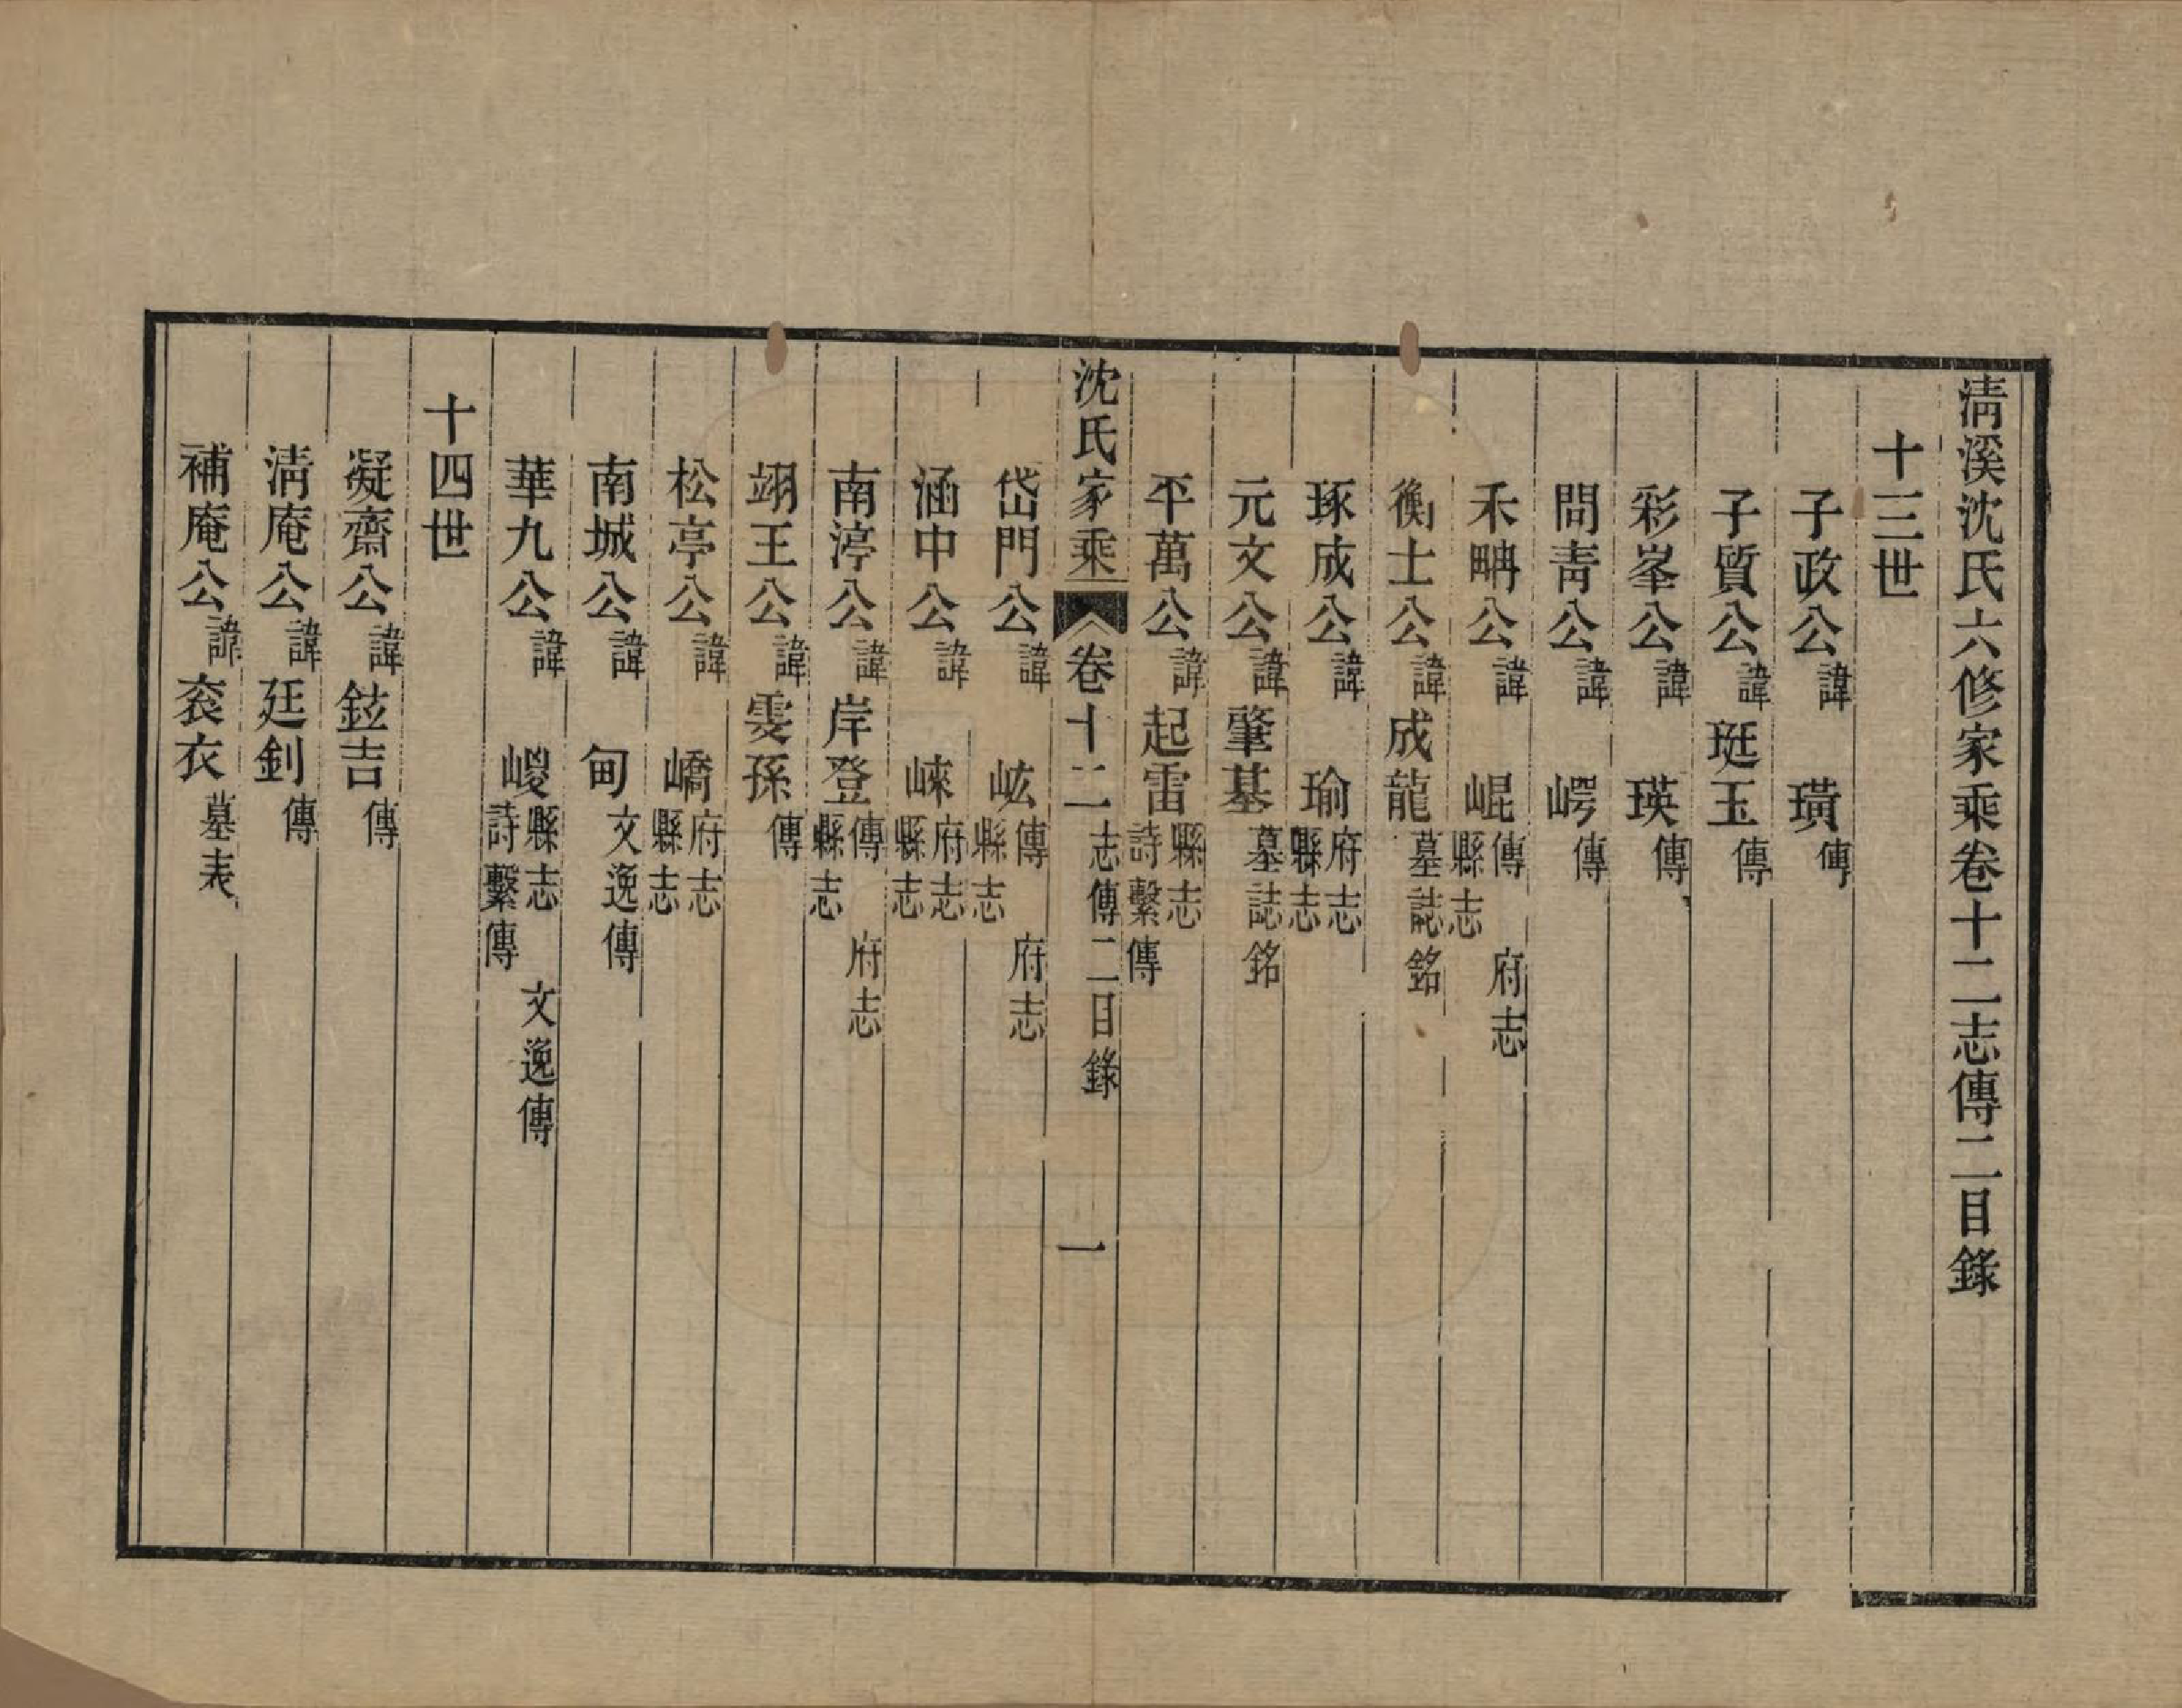 淸溪沈氏六修家乘卷十二志傳二目錄
十三世
子政公諱璜傳
子質公諱珽玉傳
彩峯公諱瑛傳
問靑公諱崿傳
禾疇公諱崐傳 府志 縣志
衡士公諱成龍墓誌銘
琢成公諱瑜府志 縣志
元文公諱肇基墓誌銘
平萬公諱起雷縣志 詩繫傳
沈氏家乘 卷十二志傳二目錄 一
岱門公諱岦傳 府志 縣志
涵中公諱崍府志 縣志
南渟公諱岸登傳 府志 縣志
翊王公諱雯孫傳
松亭公諱嶠府志 縣志
南城公諱甸文逸傳
華九公諱嵕縣志 文逸傳 詩繫傳
十四世
凝齋公諱鉉吉傳
淸庵公諱廷釗傳
補庵公諱袞衣墓表